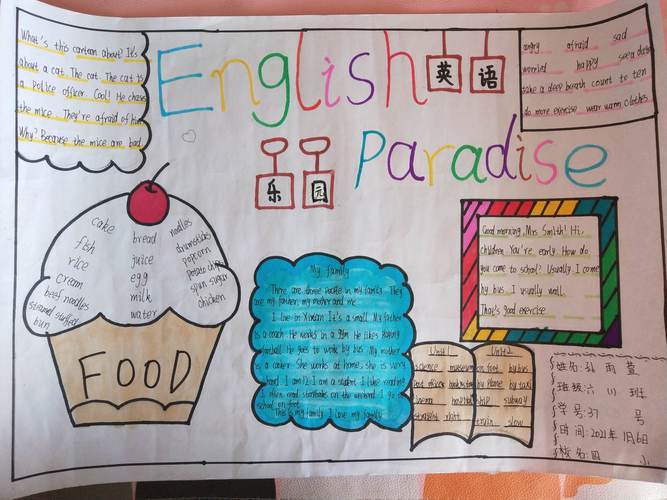 What's this cartoon about? It's
about a cat. The cat. The cat is
a police officer. Cool! He chase
the mice. They're afraid of him
Why? Because the mice are bad.
English
英语
乐园
Paradise
angry afraid sad
worried happy see a doctor
take a deep breath count to ten
do more exercise wear warm clothes
cake
fish
rice
cream
beef noodles
bun
bread
juice
egg
milk
water
noodles
drumsticks
popcorn
potato chips
spun sugar
chicken
FOOD
My family
There are three people in my family. They
are my father, my mother and me.
I live in It's a small. My father
is a coach. He works in a gym. He likes playing
football. He goes to work by bus. My mother
is a She works at home, she is very
hard. I am 12. I am a student. I like reading
I often read storybooks on the weekend. I go
school on foot.
This is my family. I love my family.
Good morning, Mrs Smith! Hi,
children. You're early. How do
you come to school? Usually, I come
by bus. I usually walk.
That's good exercise
Unit 1
science museum
post office bookstore
cinema hospital
straight right
Unit 2
on foot by bus
by plane by taxi
ship subway
train slow
姓名:孙雨萱
班级:六(1)班
学号:37号
时间:2021年1月6日
校名:四小